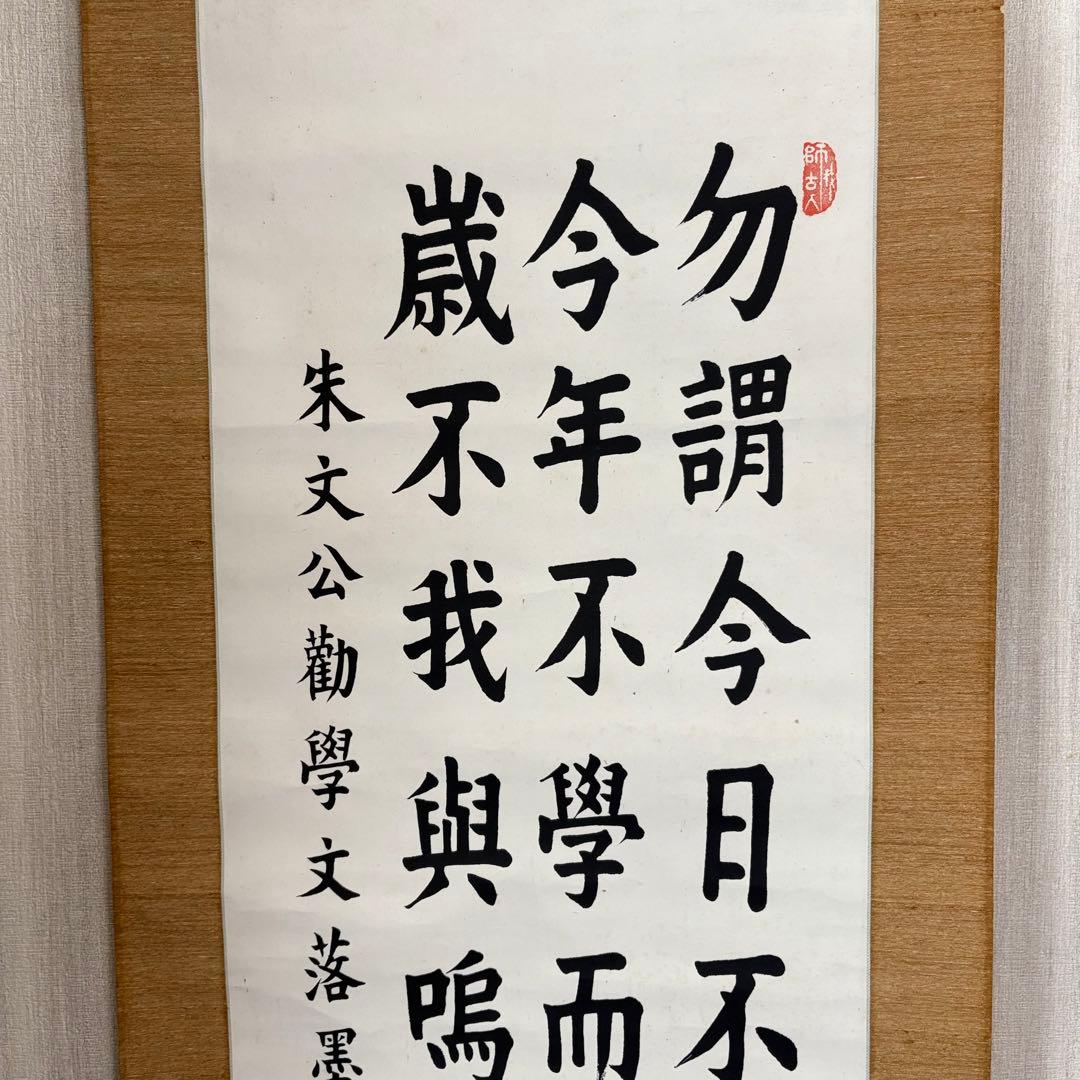 勿謂今日不
今年不學而
歳不我與嗚
朱文公勸學文落墨
師古人